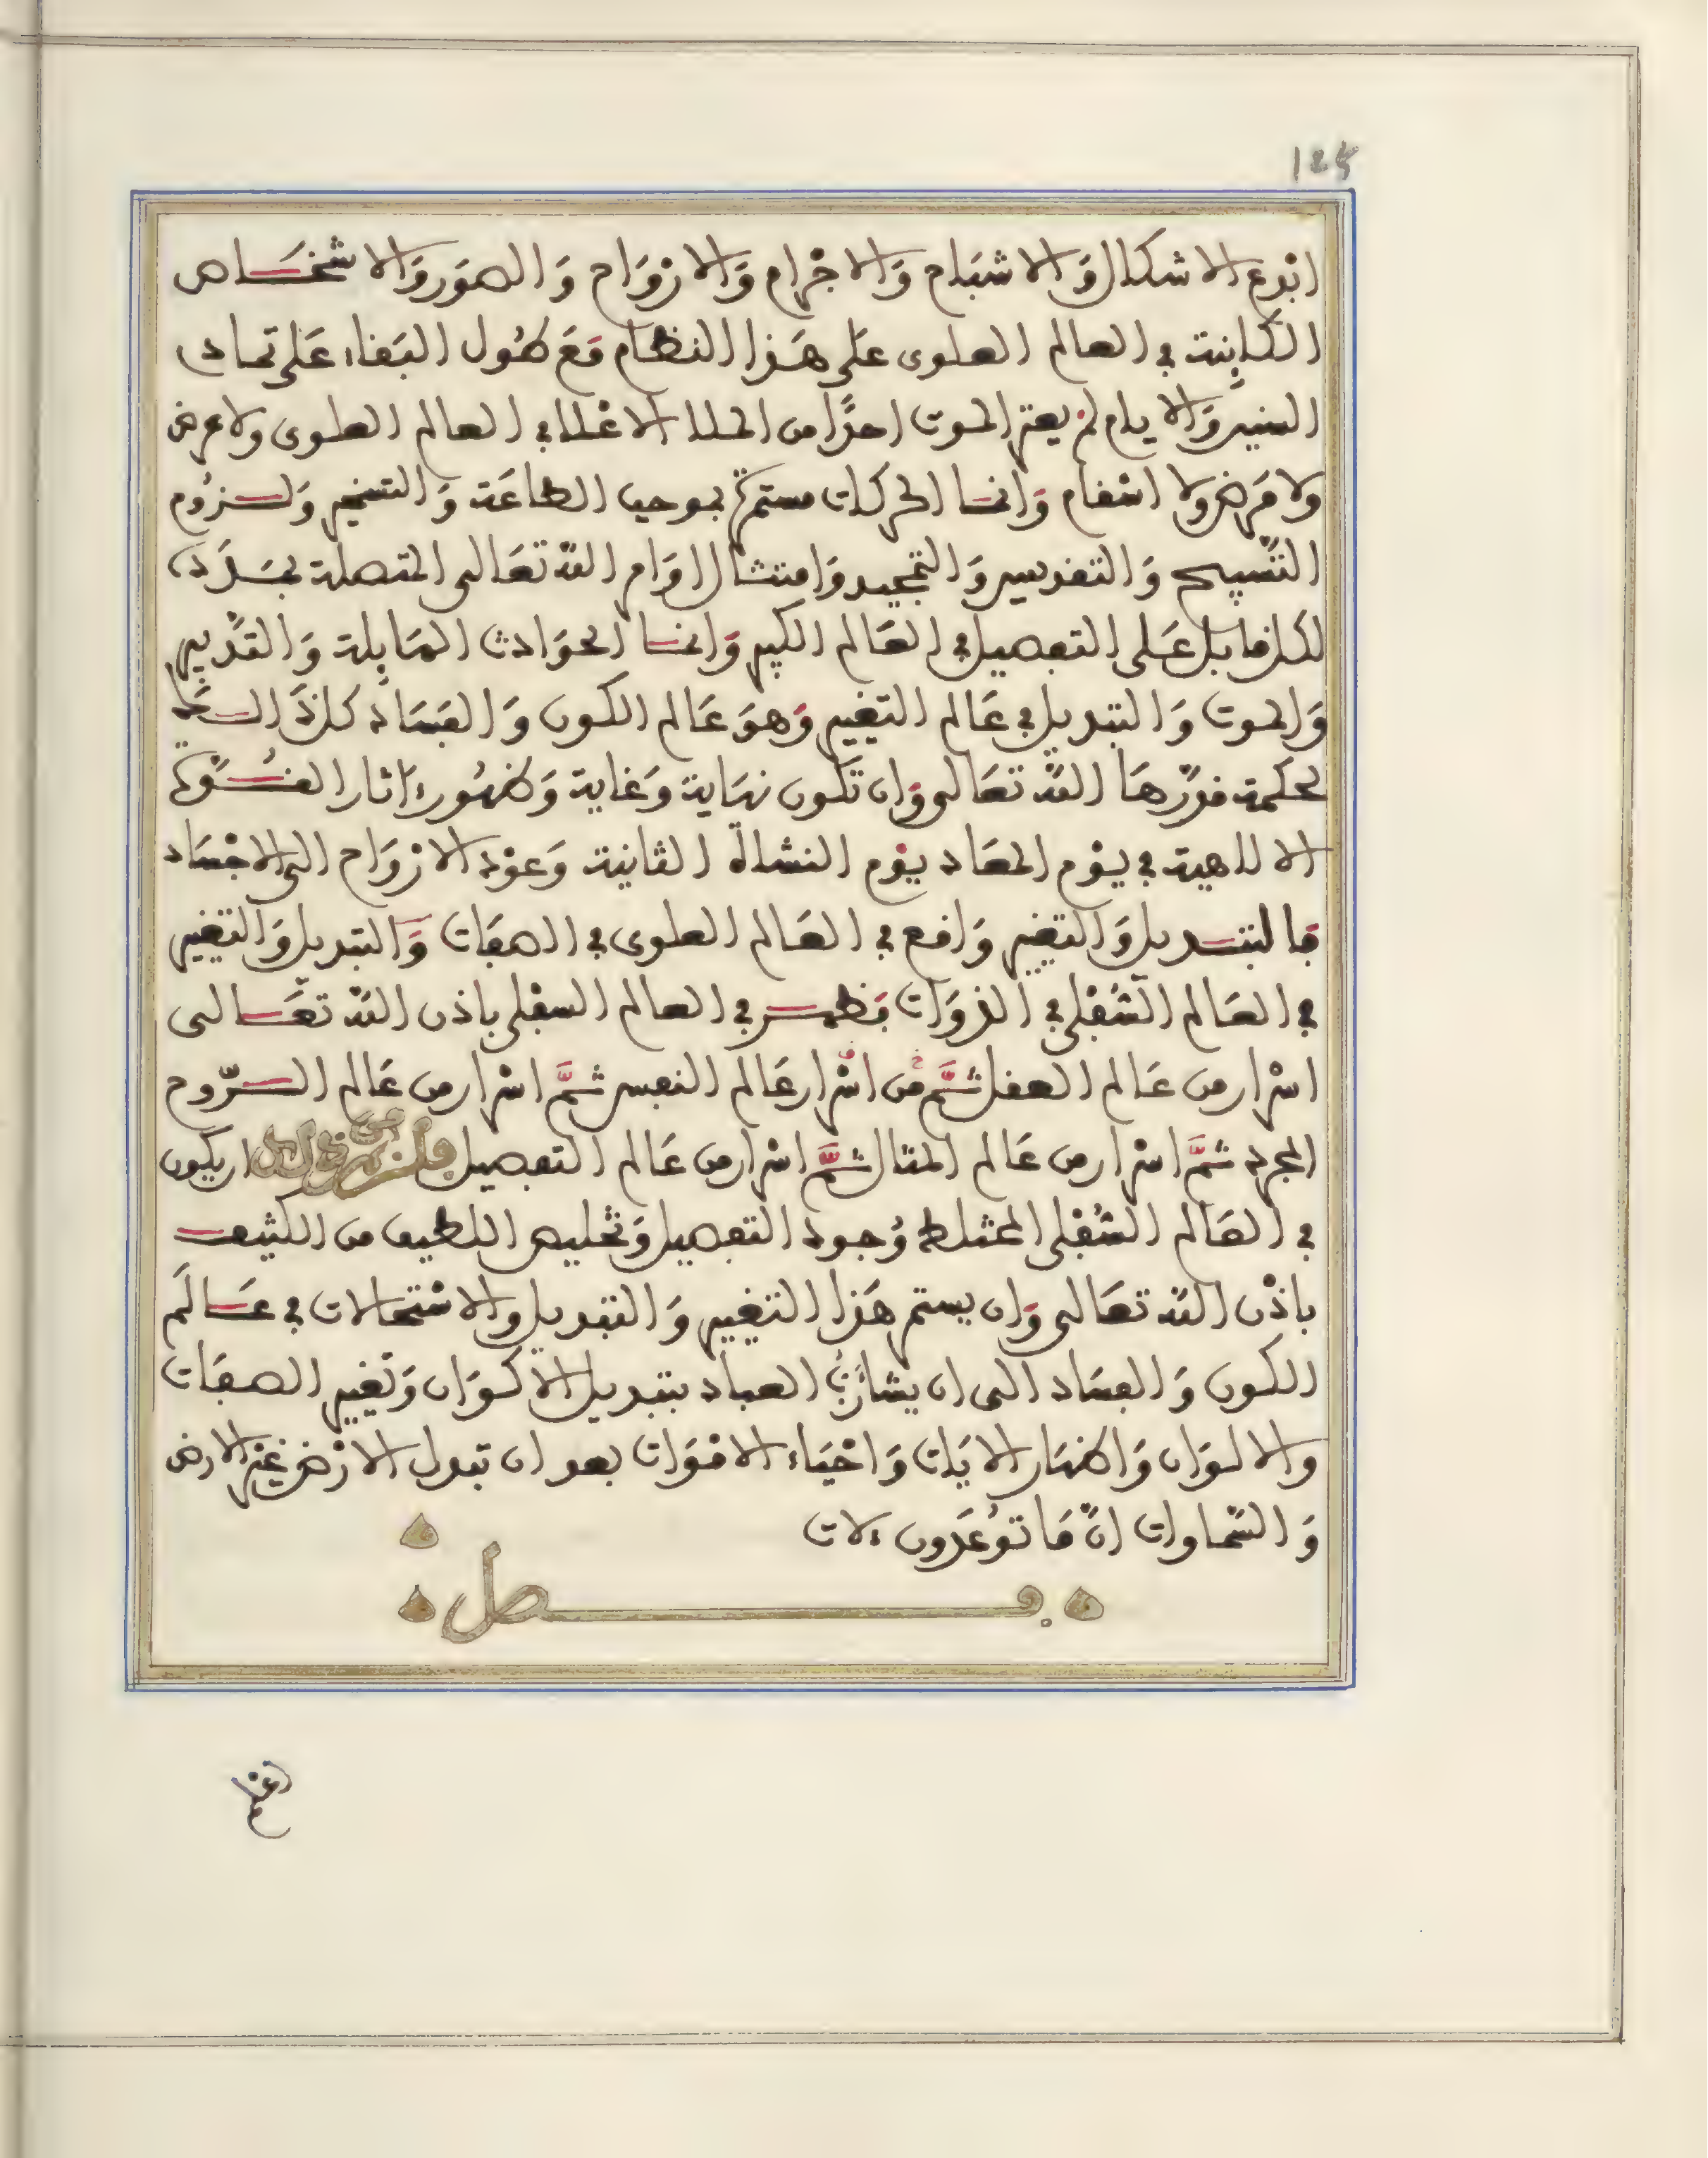 125
ابدع الاشكال وَالاشبَاح وَالاجْرام وَالارْوَاح وَالصوَر وَالاشخَاص
الكاينة في العالم العلوى عَلى هَذا النظام مَعَ طُول البَقاء عَلى تمادى
السنين وَالايام لم يعتر الموت احدًا من الملا الاعْلا في العالم العلوى ولا عرض
ولا مَرض ولا اسْقام وَانما الحركات مستمرة بموجب الطاعَة وَالتسخير وَلزُوم
التّسبيح وَالتقديس وَالتمجيد وَامتثال اوَامر الله تعَالى المتصلة
لكل قابل عَلى التفصيل في العَالم الكبير وَانما الحوَادث الهَايِلة وَالتدْبير
وَالموت وَالتبديل في عَالم التغيير وَهوَ عَالم الكون وَالفسَاد كل ذَالك
لحكمة قدّرهَا الله تعَالى وَان تكون نهَاية وَغاية وَظهُور ءاثار القوة
الالاهية في يوْم المعَاد يوْم النشاة الثانية وَعوْد الارْوَاح الى الاجْسَاد
فالتبديل وَالتغيير وَاقع في العَالم العلوى في الصفَات وَالتبديل وَالتغيير
في العَالم السُّفْلى في الذوَات فظهر في العالم السفْلى باذن الله تعَالى
اسْرار من عَالم العقل ثمَّ من اسْرار عَالم النفس ثمَّ اسْرار من عَالم الرّوح
المجرد ثمَّ اسْرار من عَالم المثال ثمَّ اسْرار من عَالم التفصيل ان يكون
في العَالم السُّفْلى المختلط وُجود التفصيل وَتخليص اللطيف من الكثيف
باذْن الله تعَالى وَان يستمر هَذا التغيير وَالتبديل والاسْتحالات في عَالَم
الكون وَالفسَاد الى ان يشاء رَبُّ العباد بتبديل الاكوَان وَتغْيير الصفَات
والالوَان وَاظهَار الايَات وَاحْيَاء الامْوَات بعد ان تبدل الارْض غيْر الارض
وَالسّماوات انّ مَا توُعَدون ءلات
فصل
اعْلم